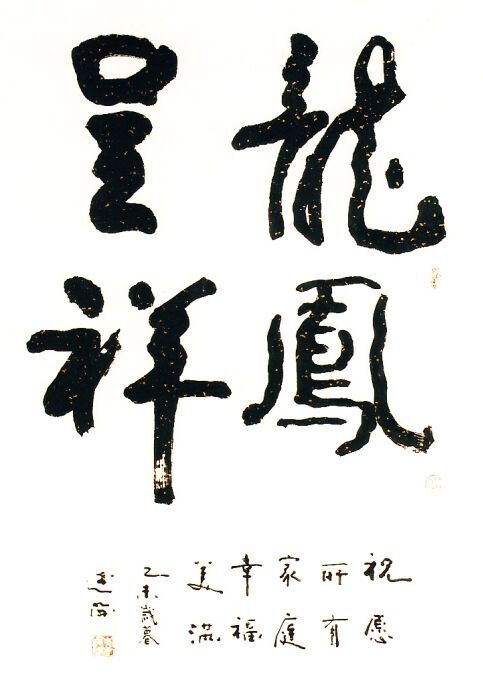 龍鳳
呈祥
祝愿
所有
家庭
幸福
美满
乙未歲暮